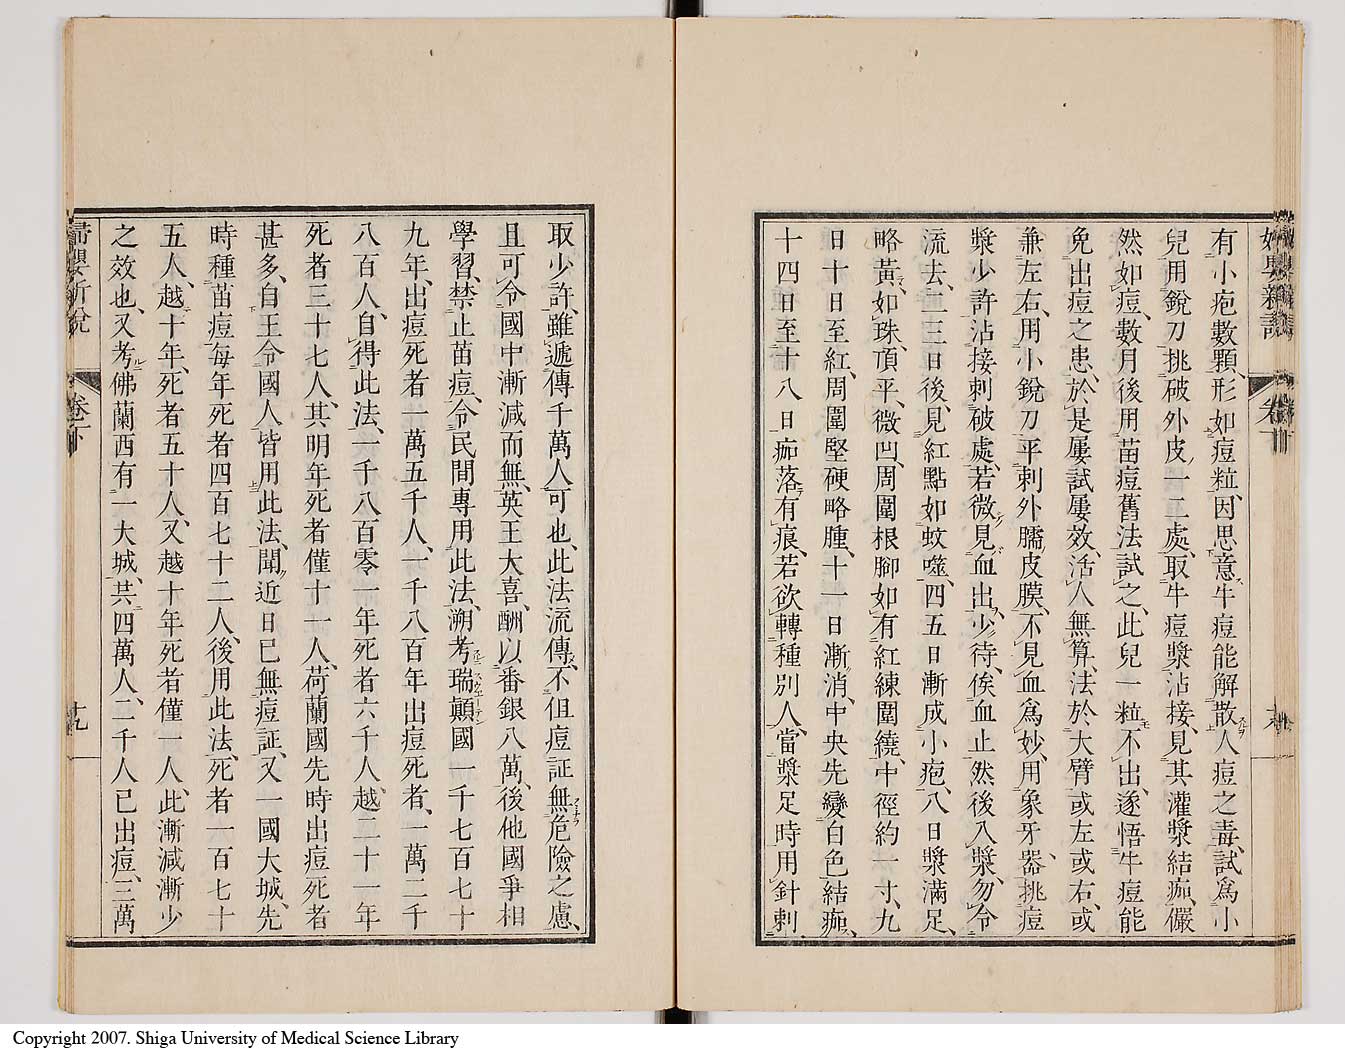 有小疱數顆、形如痘粒、因思意牛痘能解散人痘之毒、試爲小
兒用銳刀挑破外皮一二處、取牛痘漿沾接、見其灌漿結痂、儼
然如痘、數月後用苗痘舊法試之、此兒一粒不出、遂悟牛痘能
免出痘之患、於是屢試屢效、活人無算、法於大臂或左或右、或
兼左右、用小銳刀平刺外臑皮膜、不見血爲妙、用象牙器、挑痘
漿少許沾接刺破處、若微見血出、少待、俟血止然後入漿、勿令
流去、二三日後、見紅點如蚊噬、四五日漸成小疱、八日漿滿足、
略黃、如珠、頂平、微凹、周圍根腳如有紅線圍繞、中徑約一寸、九
日十日至紅、周圍堅硬略腫、十一日漸消、中央先變白色結痂、
十四日至十八日痂落有痕、若欲轉種別人、當漿足時用針刺
取少許、雖遞傳千萬人可也、此法流傳、不但痘証無危險之慮、
且可令國中漸減而無、英王大喜、酬以番銀八萬、後他國爭相
學習、禁止苗痘、令民間專用此法、溯考瑞顛國一千七百七十
九年、出痘死者一萬五千人、一千八百年出痘死者、一萬二千
八百人、自得此法、一千八百零一年死者六千人、越二十一年
死者三十七人、其明年死者僅十一人、荷蘭國先時出痘死者
甚多、自王令國人皆用此法、聞近日已無痘証、又一國大城、先
時種苗痘、每年死者四百七十二人、後用此法、死者一百七十
五人、越十年、死者五十人、又越十年死者僅一人、此漸減漸少
之效也、又考佛蘭西有一大城、共四萬人、二千人已出痘、三萬
卷下
十九
Copyright 2007. Shiga University of Medical Science Library